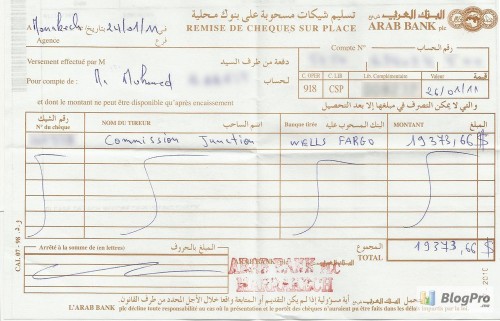 تسليم شيكات مسحوبة على بنوك محلية
REMISE DE CHEQUES SUR PLACE
البنك العربي ش م ع
ARAB BANK plc
A Marrakech بتاريخ 24/01/11 في
Agence
Compte N° رقم الحساب
Versement effectué par M دفعة من طرف السيد
Pour compte de : Mr Mohamed لحساب
C. OPER C. LIB Lib. Complémentaire Valeur قيمة
918 CSP 26/01/11
et dont le montant ne peut être disponible qu'après encaissement
والتي لا يمكن التصرف في مبلغها إلا بعد التحصيل
رقم الشيك N° du chèque
NOM DU TIREUR اسم الساحب
Banque tirée البنك المسحوب عليه
MONTANT المبلغ
Commission Junction WELLS FARGO 19373,66 $
Arrêté à la somme de (en lettres) المبلغ بالحروف
المجموع TOTAL 19373,66 $
ARAB BANK PLC
MARRAKECH
CAI. 07 - 98
BlogPro
L'ARAB BANK plc décline toute responsabilité au cas où la présentation et le protêt des chèques n'auraient pas été faits dans les délais légaux.